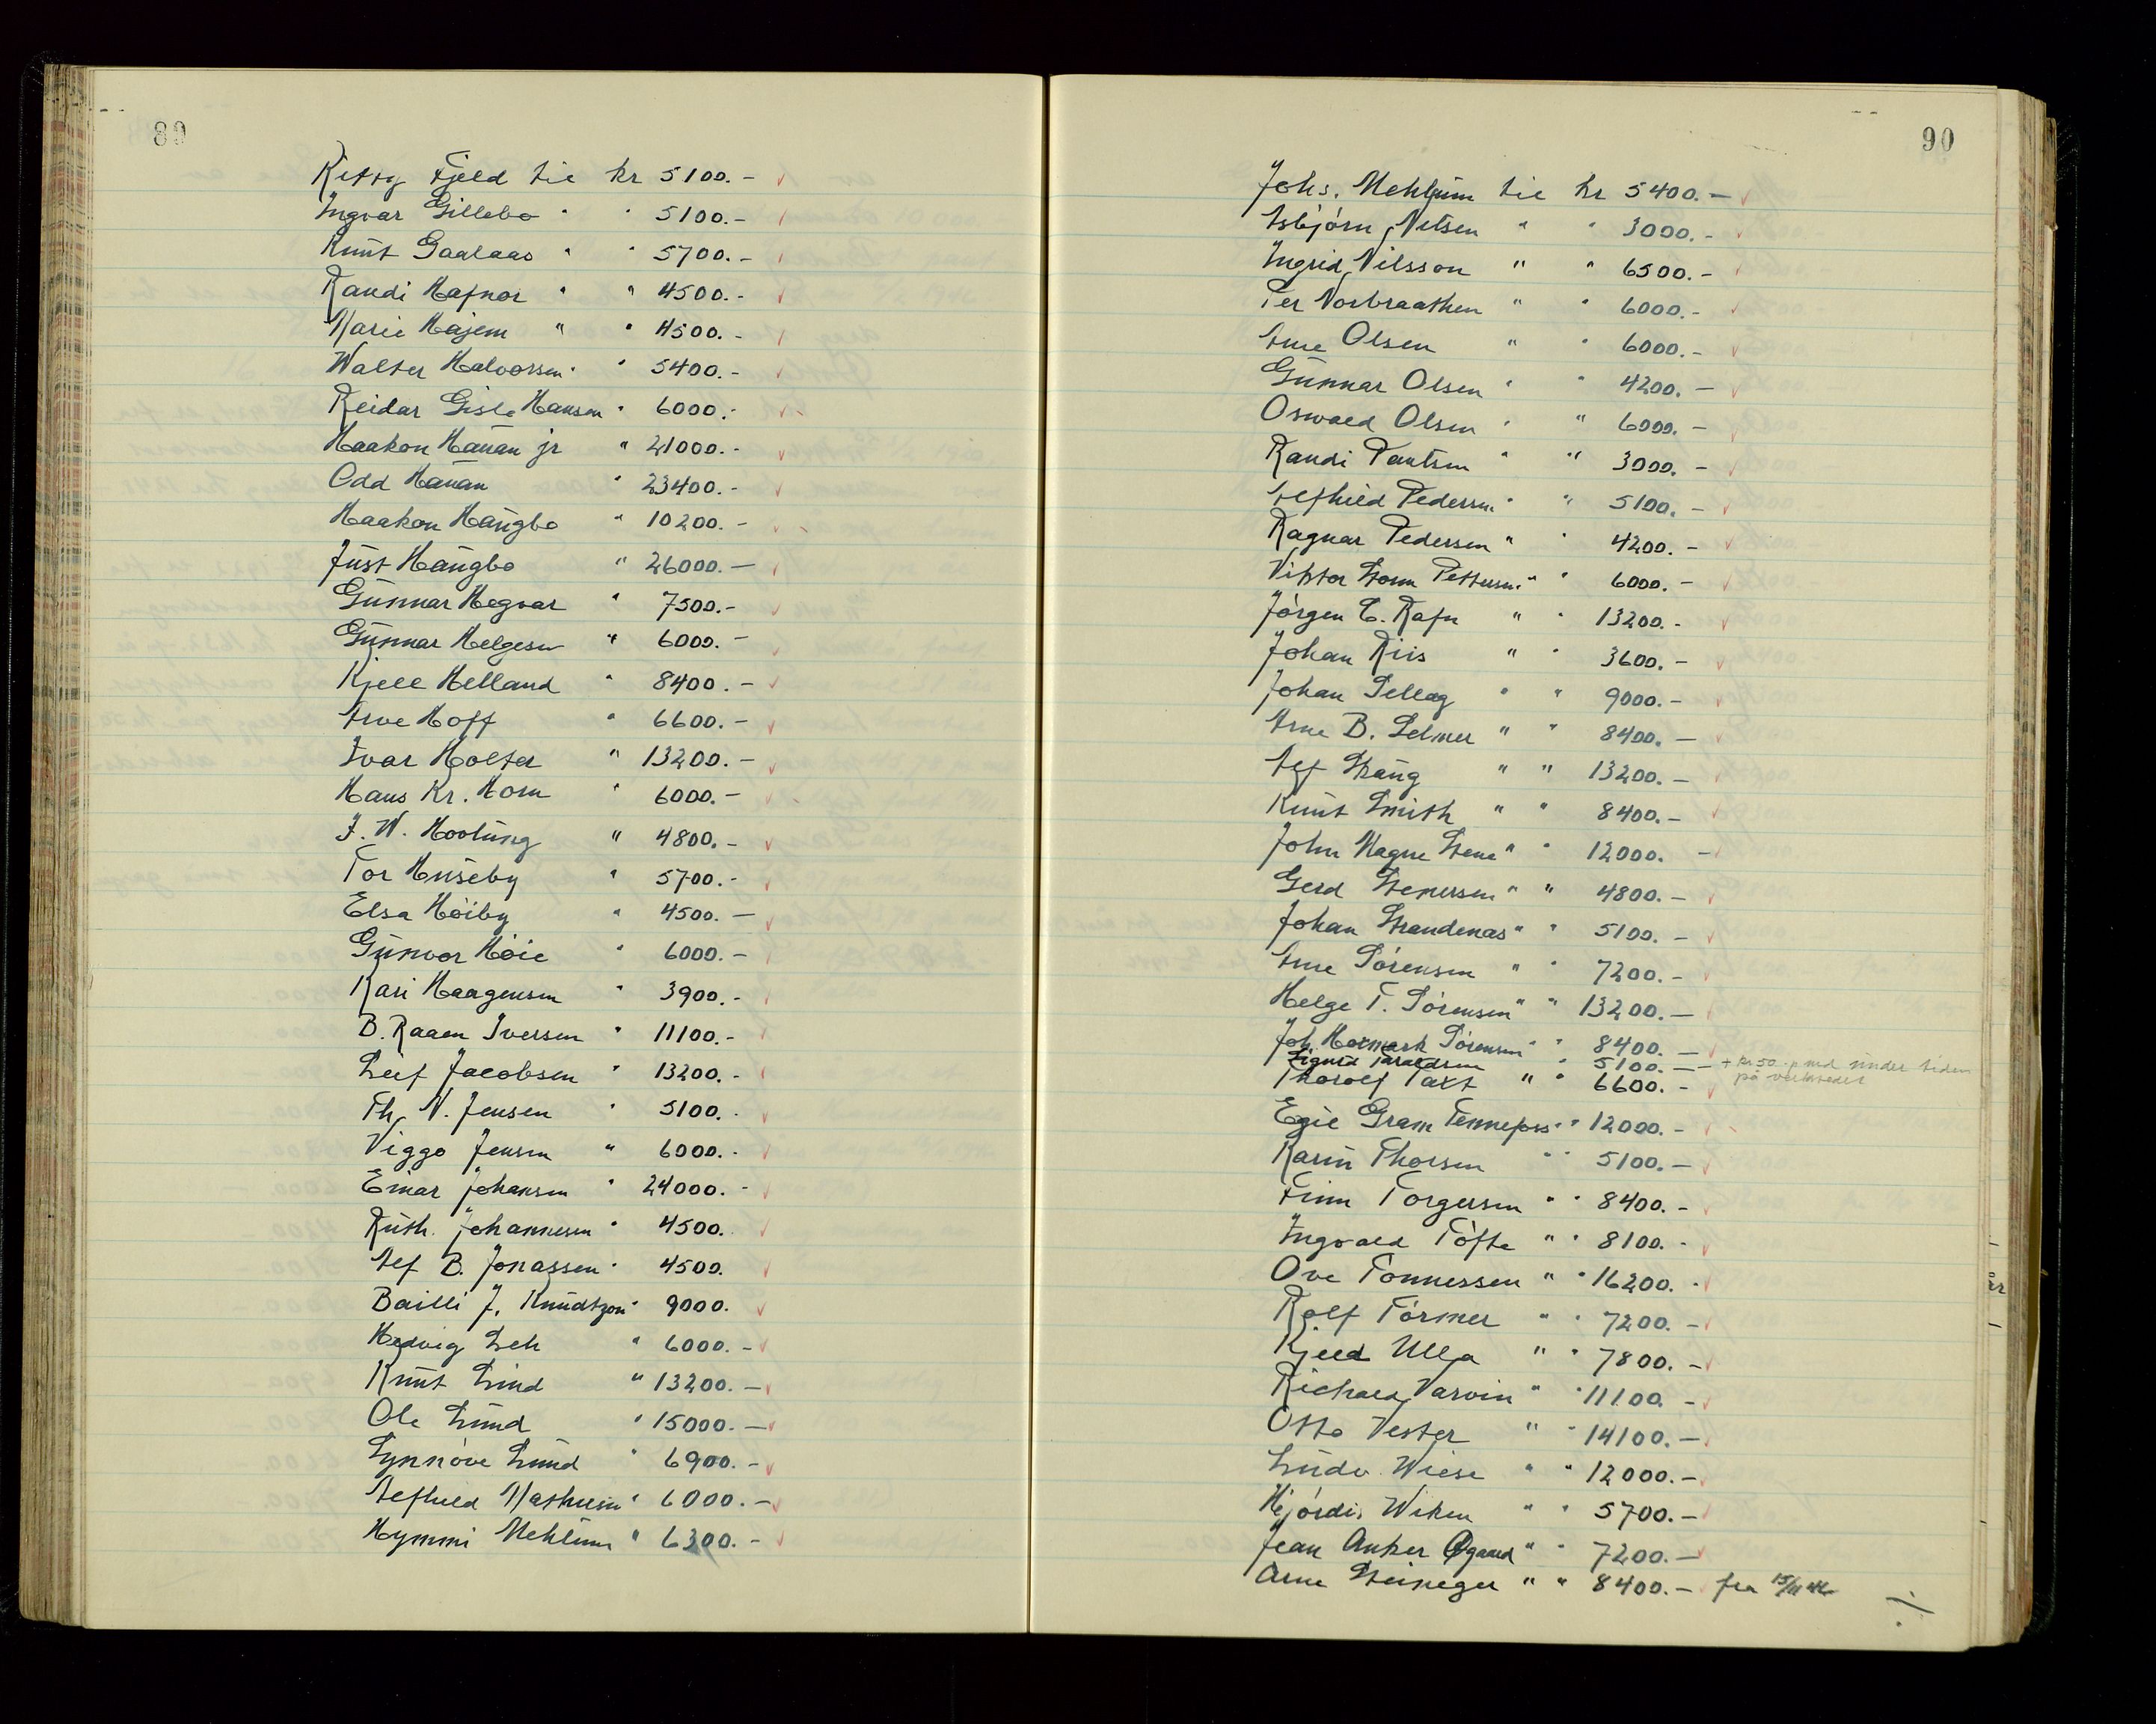 89
Kitty Fjeld til kr 5100.-
Ingvar Gillebo " " 5100.-
Knut Gaalaas " " 5700.-
Randi Hafnor " " 4500.-
Marie Hajem " " 4500.-
Walter Halvorsen " " 5400.-
Reidar Gisle Hansen " 6000.-
Haakon Hauan jr " 21000.-
Odd Hauan " 23400.-
Haakon Haugbo " 10200.-
Just Haugbo " 26000.-
Gunnar Hegvar " 7500.-
Gunnar Helgesen " 6000.-
Kjell Helland " 8400.-
Arve Hoff " 6600.-
Ivar Holter " 13200.-
Hans Kr. Horn " 6000.-
J. W. " 4800.-
Tor Huseby " 5700.-
Elsa Höiby " 4500.-
Gunvor Höie " 6000.-
Kari Haagensen " 3900.-
B. Raaen Iversen " 11100.-
Leif Jacobsen " 13200.-
Th. N. Jensen " 5100.-
Viggo Jensen " 6000.-
Einar Johansen " 24000.-
Ruth Johannesen " 4500.
Alf B. Jonassen " 4500.
Bailli J. Knudtzon " 9000.
Hedvig Leh " 6000.-
Knut Lind " 13200.-
Ole Lund " 15000.-
Synnöve Lund " 6900.-
Alfhild Mathisen " 6000.-
Hymmi Mehlum " 6300.-
90
Johs. Mehlum til kr 5400.-
Asbjörn Nilsen " " 3000.-
Ingrid Nilsson " " 6500.-
Per Norbraathen " " 6000.-
Arne Olsen " " 6000.-
Gunnar Olsen " " 4200.-
Oswald Olsen " " 6000.-
Randi Paulsen " " 3000.-
Alfhild Pedersen " " 5100.-
Ragnar Pedersen " " 4200.-
Viktor Storm Pettersen " " 6000.-
Jörgen C. Rafn " " 13200.-
Johan Riis " " 3600.-
Johan Sellæg " " 9000.-
Arne B. Selmer " " 8400.-
Alf Skaug " " 13200.-
Knut Smith " " 8400.-
John Magne Stene " " 12000.-
Gerd Stenersen " " 4800.-
Johan Strandenas " " 5100.-
Arne Sörensen " " 7200.-
Helge T. Sörensen " " 13200.-
Joh. Hormark Sörensen " " 8400.-
Sigurd Taraldsen " 5100.- + kr 50 p. md under tiden
på verksteder
Thorolf Taxt " " 6600.-
Egil Gram Tennefoss " " 12000.-
Karin Thorsen " " 5100.-
Finn Torgersen " " 8400.-
Ingvald Töfte " " 8100.-
Ove Tönnessen " " 16200.-
Rolf Törmer " " 7200.-
Kjell Ulla " " 7800.-
Richard Varvin " " 11100.-
Otto Vester " " 14100.-
Ludv. Wiese " " 12000.-
Hjördis Wiken " " 5700.-
Jean Anker Øgaard " " 7200.-
Arne Steineger " " 8400.- fra 15/11 46